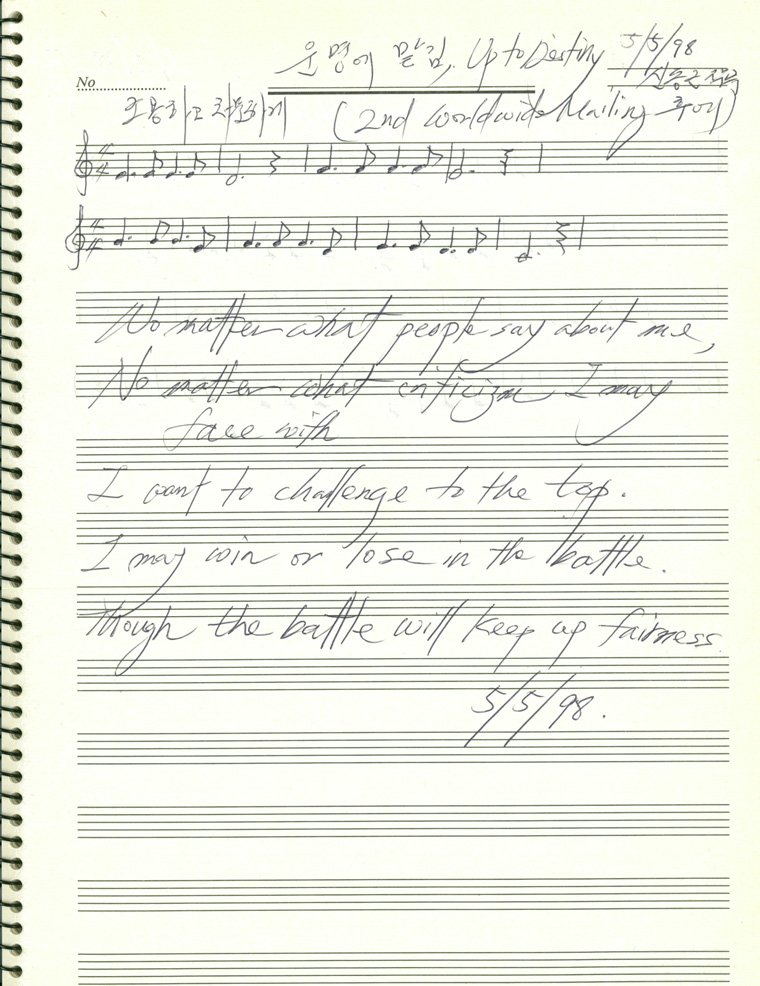 운명에 맡김, Up to Destiny 5/5/98
No
조용하고 차분하게 (2nd Worldwide Mailing 후에)
No matter what people say about me,
No matter what criticizm I may
face with
I want to challenge to the top.
I may win or lose in the battle.
Though the battle will keep up fairness
5/5/98.